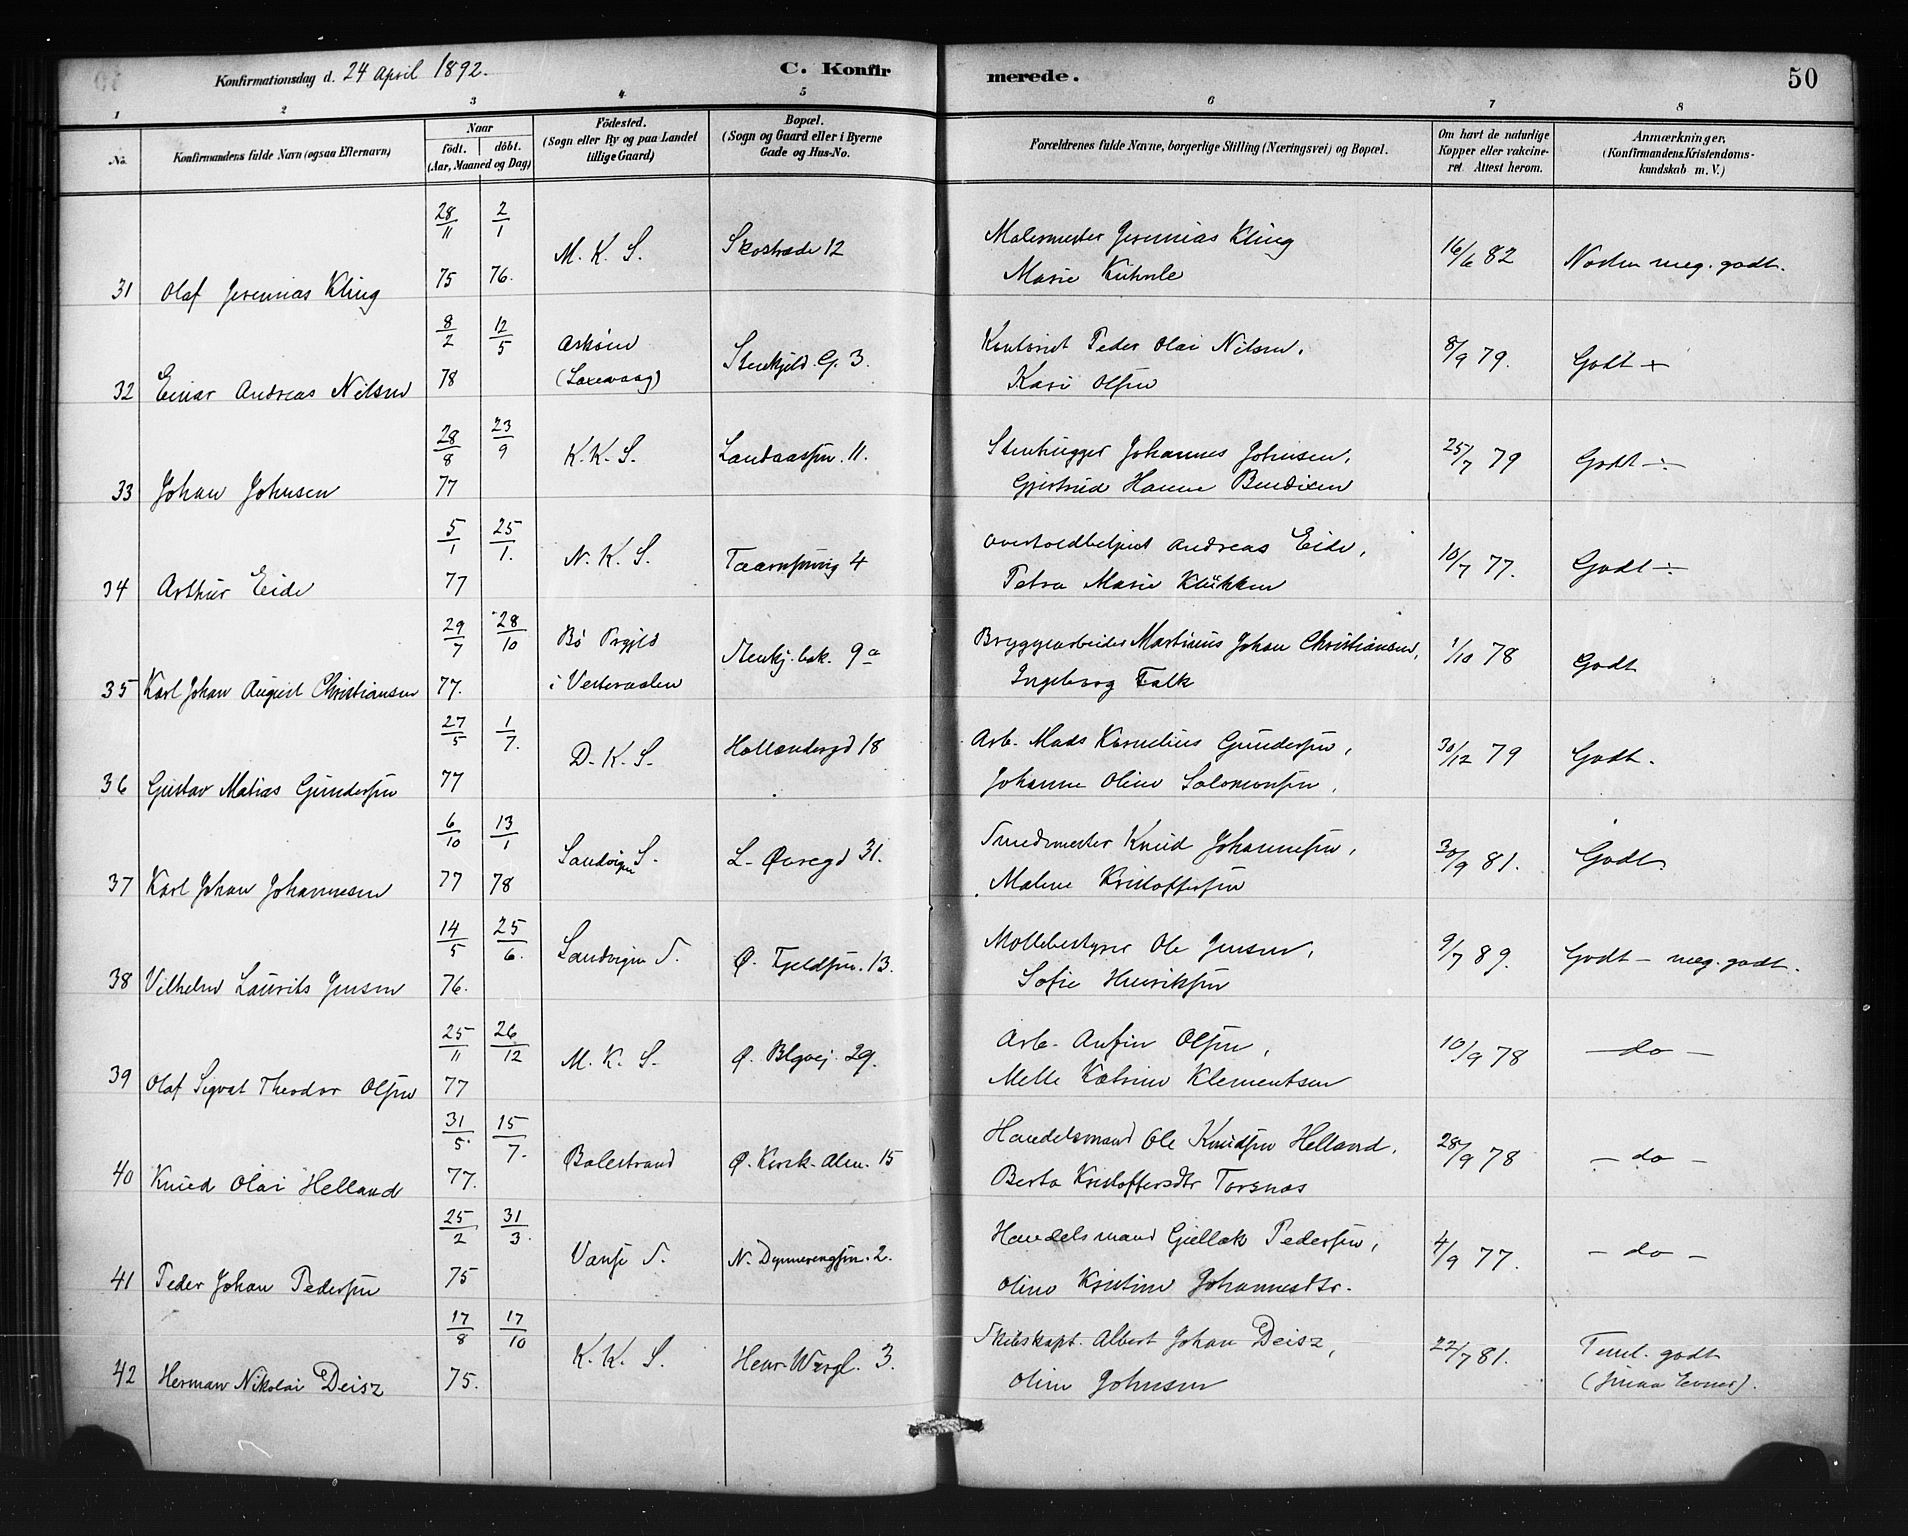 Konfirmationsdag d. 24 April 1892. C. Konfirmerede. 50
1 2 3 4 5 6 7 8
No. Konfirmandens fulde Navn (ogsaa Efternavn) Naar födt. döbt. (Aar, Maaned og Dag) Födested. (Sogn eller By og paa Landet tillige Gaard) Bopæl. (Sogn og Gaard eller i Byerne Gade og Hus-No. Forældrenes fulde Navne, borgerlige Stilling (Næringsvei) og Bopæl. Om havt de naturlige Kopper eller vakcineret. Attest herom. Anmærkninger, (Konfirmandens Kristendomskundskab m. V.)
28/11 2/1 M. K. S. Skostræde 12 Malermester Jeremias Kling 16/6 82 Noksaa meg. godt.
31 Olaf Jeremias Kling 75 76. Marie Kühnle
8/2 12/5 Askøen Stenkjeld. G. 3. Kontorist Peder Olai Nilsen, 8/9 79. Godt +
32 Einar Andreas Nilsen 78 (Laxevaag) Kari Olsen
28/8 23/9 K. K. S. Landaassm. 11. Stenhugger Johannes Johnsen, 25/7 79 Godt ÷
33 Johan Johnsen 77 Gjertrud Hanne Bendixen
5/1 25/1. N. K. S. 4 Andreas Eide, 10/7 77. Godt ÷
34 Arthur Eide 77 Petra Marie Klükken
29/7 28/10 Bø Prgjld Stenkj. bak. 9a Bryggearbeider Martinus Johan Christiansen, 1/10 78 Godt
35 Karl Johan August Christiansen 77. i Vesteraalen Ingeborg Falk
27/5 1/7. D. K. S. Hollændergd 18 Arb. Mads Kornelius Gundersen, 30/12 79 Godt.
36 Gustav Matias Gundersen 77 Johanne Oline Salomonsen,
6/10 13/1 Sandvigen S. L. Øvregd 31. Smedmester Knud Johannesen, 30/9 81. Godt.
37 Karl Johan Johannesen 77 78 Malene Kristoffersen
14/5 25/6. Sandvigen S. Ø. Fjeldsm. 13. Møllebestyrer Ole Jensen, 9/7 89. Godt - meg. godt.
38 Vilhelm Laurits Jensen 76. Sofie Henriksen
25/11 26/12 M. K. S. Ø. Blgvej. 29. Arb. Anfin Olsen, 10/9 78 - do -
39 Olaf Sigvat Theodor Olsen 77 Mette Katrine Klementsen
31/5. 15/7. Balestrand Ø. Kirk. Alm. 15 Handelsmand Ole Knudsen Helland, 28/9 78 - do -
40 Knud Olai Helland 77. Berta Kristoffersdtr Torsnæs
25/2 31/3. Vanse S. N. 2. Handelsmand Pedersen, 4/9 77. - do -
41 Peder Johan Pedersen 75 Oline Kristine Johannesdtr.
17/8 17/10 K. K. S. Henr. Wergl. 3. Skibskapt. Albert Johan Deisz, 22/7 81. Teml. godt
42 Herman Nikolai Deisz 75. Oline Johnsen (smaa Evner).